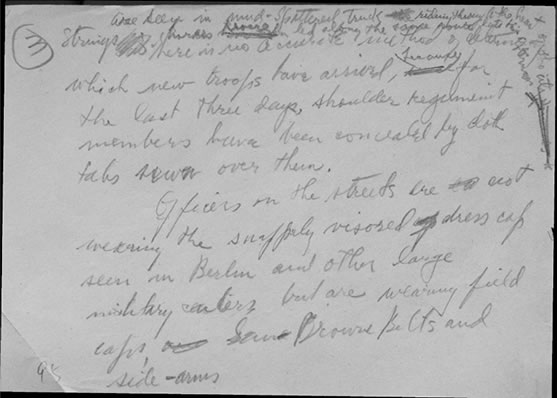 3
are seen in mud-spattered trucks riding
Strings horses led along the
There is no accurate method of
which new troops have arrived, for
the last three days, shoulder regiment
members have been concealed by cloth
tabs sewn over them.
Officers on the streets are not
wearing the snappily visored dress cap
seen in Berlin and other large
military centers but are wearing field
caps, Sam Browne Belts and
side-arms